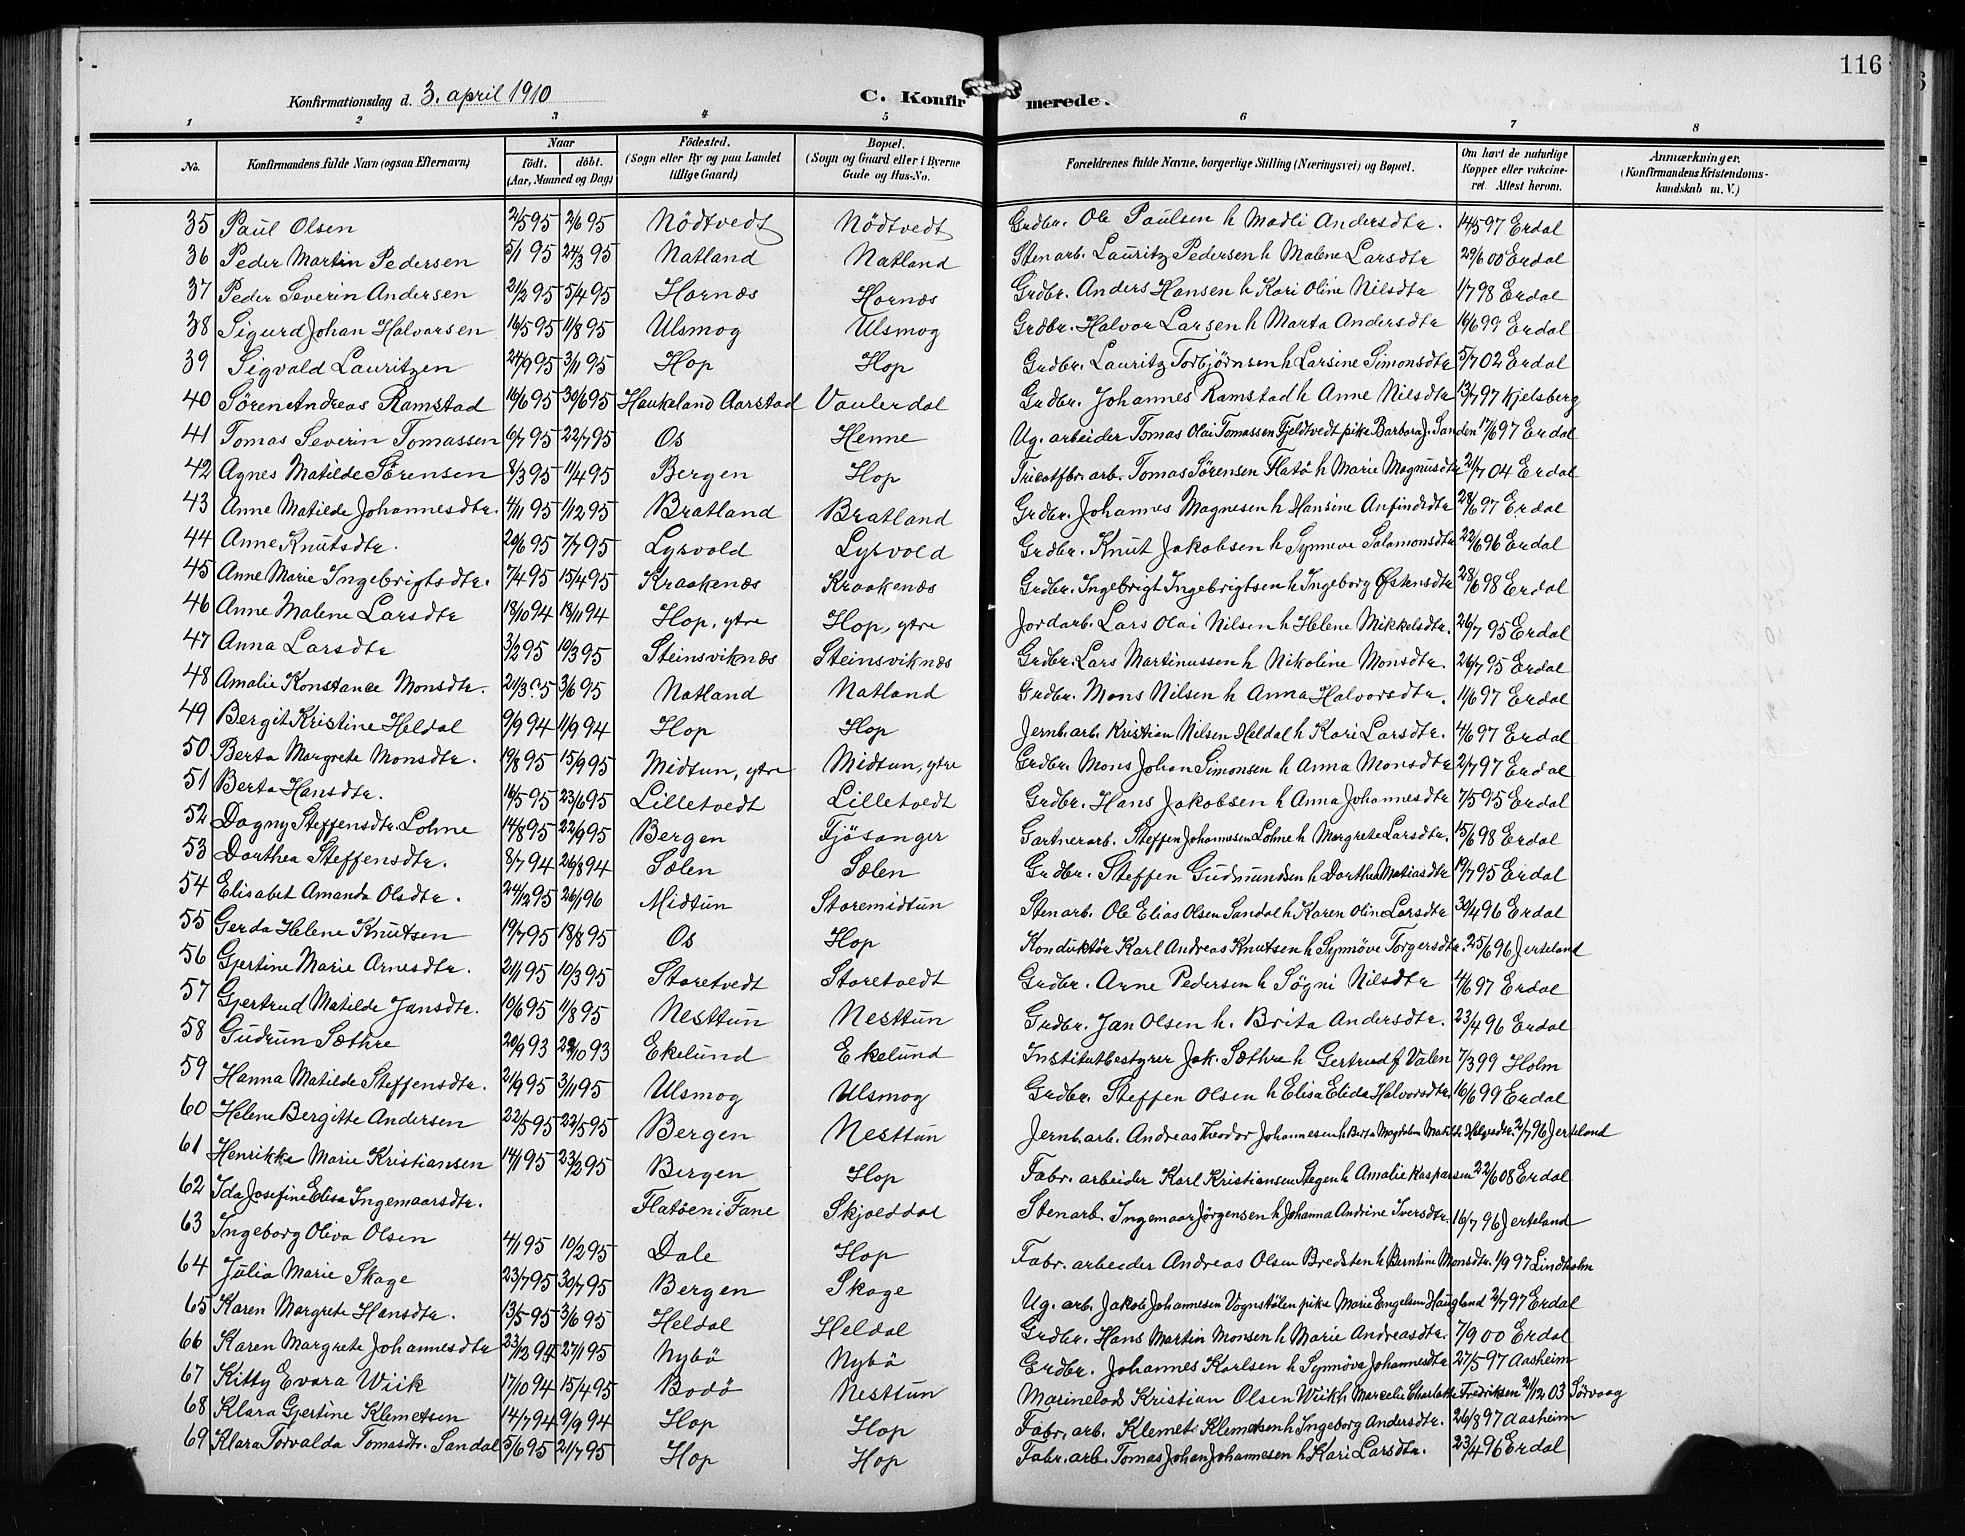 116
Konfirmationsdag d. 3. april 1910 C. Konfirmerede.
1 2 3 4 5 6 7 8
No. Konfirmandens fulde Navn (ogsaa Efternavn) Naar født. døbt. (Aar, Maaned og Dag) Fødested. (Sogn eller By og paa Landet tillige Gaard) Bopæl. (Sogn og Gaard eller i Byerne Gade og Hus-No. Forældrenes fulde Navne, borgerlige Stilling (Næringsvei) og Bopæl. Om havt de naturlige Kopper eller vakcineret. Attest herom. Anmærkninger. (Konfirmandens Kristendomskundskab m. V.)
35 Paul Olsen 2/5 95 2/6 95 Nödtvedt Nödtvedt Grdbr. Ole Paulsen h Madli Andersdtr. 14/5 97 Erdal
36 Peder Martin Pedersen 5/1 95 24/3 95 Natland Natland Stenarb. Lauritz Pedersen h Malene Larsdtr 29/6 00 Erdal
37 Peder Severin Andersen 21/2 95 5/4 95 Hornæs Hornæs Grdbr. Anders Hansen h Kari Oline Nilsdtr 1/7 98 Erdal
38 Sigurd Johan Halvorsen 16/5 95 11/8 95 Ulsmog Ulsmog Grdbr. Halvor Larsen h Marta Andersdtr 16/6 99 Erdal
39 Sigvald Lauritzen 24/9 95 3/11 95 Hop Hop Grdbr. Lauritz Torbjørnsen h Larsine Simonsdtr 5/7 02 Erdal
40 Sören Andreas Ramstad 16/6 95 30/6 95 Haukeland Aarstad Vaulerdal Grdbr. Johannes Ramstad h Anne Nilsdtr 13/7 97 Kjelsberg
41 Tomas Severin Tomassen 6/7 95 22/7 95 Os Henne Ug. arbeider Tomas Olai Tomassen Fjeldtvedt pike Barbara J. Sanden 17/6 97 Erdal
42 Agnes Matilde Sörensen 8/3 95 11/4 95 Bergen Hop Tricotfbr. arb. Tomas Sörensen Flatö h Marie Magnusdtr 21/7 04 Erdal
43 Anne Matilde Johannesdtr. 4/11 95 1/12 95 Bratland Bratland Grdbr. Johannes Magnesen h Hansine Anfindsdtr 28/6 97 Erdal
44 Anne Knutsdtr. 29/6 95 7/7 95 Lysvold Lysvold Grdbr. Knut Jakobsen h Synneve Salamonsdtr 22/6 96 Erdal
45 Anne Marie Ingebrigtsdtr. 7/4 95 15/4 95 Kraakenæs Kraakenæs Grdbr. Ingebrigt Ingebrigtsen h Ingeborg Østensdtr 28/6 98 Erdal
46 Anne Malene Larsdtr 18/10 94 18/11 94 Hop, ytre Hop, ytre Jordarb. Lars Olai Nilsen h Helene Mikkelsdtr. 26/7 95 Erdal
47 Anna Larsdtr 3/2 95 10/3 95 Steinsviknæs Steinsviknæs Grdbr. Lars Martinussen h Nikoline Monsdtr. 26/7 95 Erdal
48 Amalie Konstance Monsdtr. 21/3 95 3/6 95 Natland Natland Grdbr. Mons Nilsen h Anna Halvorsdtr. 11/6 97 Erdal
49 Bergit Kristine Heldal 9/9 94 11/9 94 Hop Hop Jernb. arb. Kristian Nilsen Heldal h Kari Larsdtr. 4/6 97 Erdal
50 Berta Margrete Monsdtr. 19/8 95 15/9 95 Midtun, ytre Midtun, ytre Grdbr. Mons Johan Simonsen h Anna Monsdtr 2/7 97 Erdal
51 Berta Hansdtr. 16/5 95 23/6 95 Lilletvedt Lilletvedt Grdbr. Hans Jakobsen h Anna Johannesdtr 7/5 95 Erdal
52 Dagny Steffensdtr. Lohne 14/8 95 22/9 95 Bergen Fjösanger Gartnerarb. Steffen Johannessen Lohne h Margrete Larsdtr. 15/6 98 Erdal
53 Dorthea Steffensdtr. 8/7 94 26/8 94 Sælen Sælen Grdbr. Steffen Gudmundsen h Dorthea Matiasdtr 19/7 95 Erdal
54 Elisabet Amanda Olsdtr. 24/12 95 26/1 96 Midtun Storemidtun Stenarb. Ole Elias Olsen Sandal h Karen Oline Larsdtr 30/4 96 Erdal
55 Gerda Helene Knutsen 19/7 95 18/8 95 Os Hop Konduktör Karl Andreas Knutsen h Synnöve Torgersdtr. 25/6 96 Jerteland
56 Gjertine Marie Arnesdtr. 21/1 95 10/3 95 Storetvedt Storetvedt Grdbr. Arne Pedersen h Sögni Nilsdtr 4/6 97 Erdal
57 Gjertrud Matilde Jansdtr. 10/6 95 11/8 95 Nesttun Nesttun Grdbr. Jan Olsen h. Brita Andersdtr. 23/4 96 Erdal
58 Gudrun Sæthre 20/9 93 29/10 93 Ekelund Ekelund Institutbestyrer Jak. Sæthre h Gertrud f Valen 7/3 99 Holm
59 Hanna Matilde Steffensdtr. 21/9 95 3/11 95 Ulsmog Ulsmog Grdbr. Steffen Olsen h Elisa Elida Halvorsdtr. 16/6 99 Erdal
60 Helene Bergitte Andersen 22/5 95 22/5 95 Bergen Nesttun Jernb. arb. Andreas Theodor Johannesen h Berta Magdalena Matilde Halvsdtr. 2/7 96 Jerteland
61 Henrikke Marie Kristiansen 14/1 95 23/2 95 Bergen Hop Fabr. arbeider Karl Kristiansen Stegen h Amalie Kasparsen 22/6 08 Erdal
62 Ida Josefine Elisa Ingemaarsdtr. Flatöen i Fane Skjolddal Stenarb. Ingemaar Jörgensen h Johanna Andrine Iversdtr. 16/7 96 Jerteland
63 Ingeborg Oliva Olsen 4/1 95 10/2 95 Dale Hop Fabr. arbeider Andreas Olsen Bredsten h Berntine Monsdtr. 1/9 97 Lindholm
64 Julia Marie Skage 23/7 95 30/7 95 Bergen Skage Ug. arb. Jakob Johannesen Vognstölen pike Marie Engelsen Haugland 2/7 97 Erdal
65 Karen Margrete Hansdtr. 13/5 95 3/6 95 Heldal Heldal Grdbr. Hans Martin Monsen h Marie Andreasdtr. 7/9 00 Erdal
66 Karen Margrete Johannesdtr 23/12 94 27/1 95 Nybö Nybö Grdbr. Johannes Karlsen h Synnöva Johannesdtr 27/5 97 Aasheim
67 Kitty Evora Wiik 17/10 94 15/4 95 Bodö Nesttun Marinelods Kristian Olsen Wiik h Marcelie Charlotte Fredriksen 21/12 03 Sörvaag
68 Klara Gjertine Klemetsen 14/7 94 9/9 94 Hop Hop Fabr. arb. Klemet Klemetsen h Ingeborg Andersdtr. 26/8 97 Aasheim
69 Klara Torvalda Tomasdtr. Sandal 5/6 95 21/7 95 Hop Hop Fabr. arb. Tomas Johan Johannesen h Kari Larsdtr. 23/4 96 Erdal